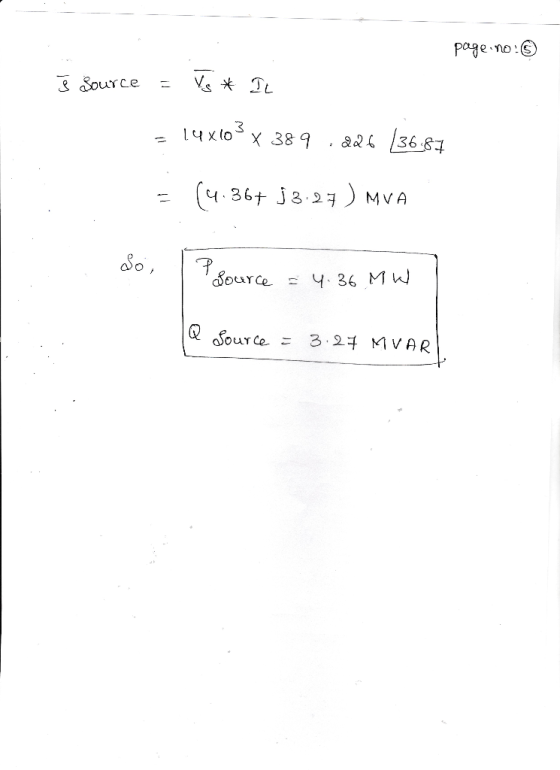 page.no:⑤
S̅ Source = V̅s * IL
= 14x10³ x 389.226 ∠36.87
= (4.36+ j3.27) MVA
So, P Source = 4.36 MW
Q Source = 3.27 MVAR